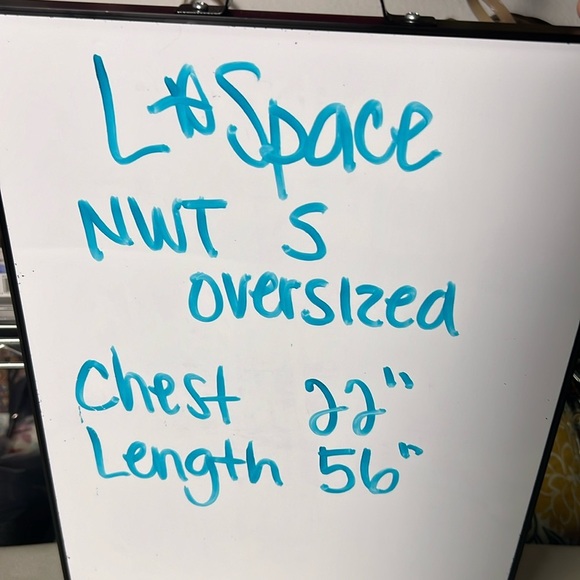 L*Space
NWT S
oversized
Chest 22"
Length 56"